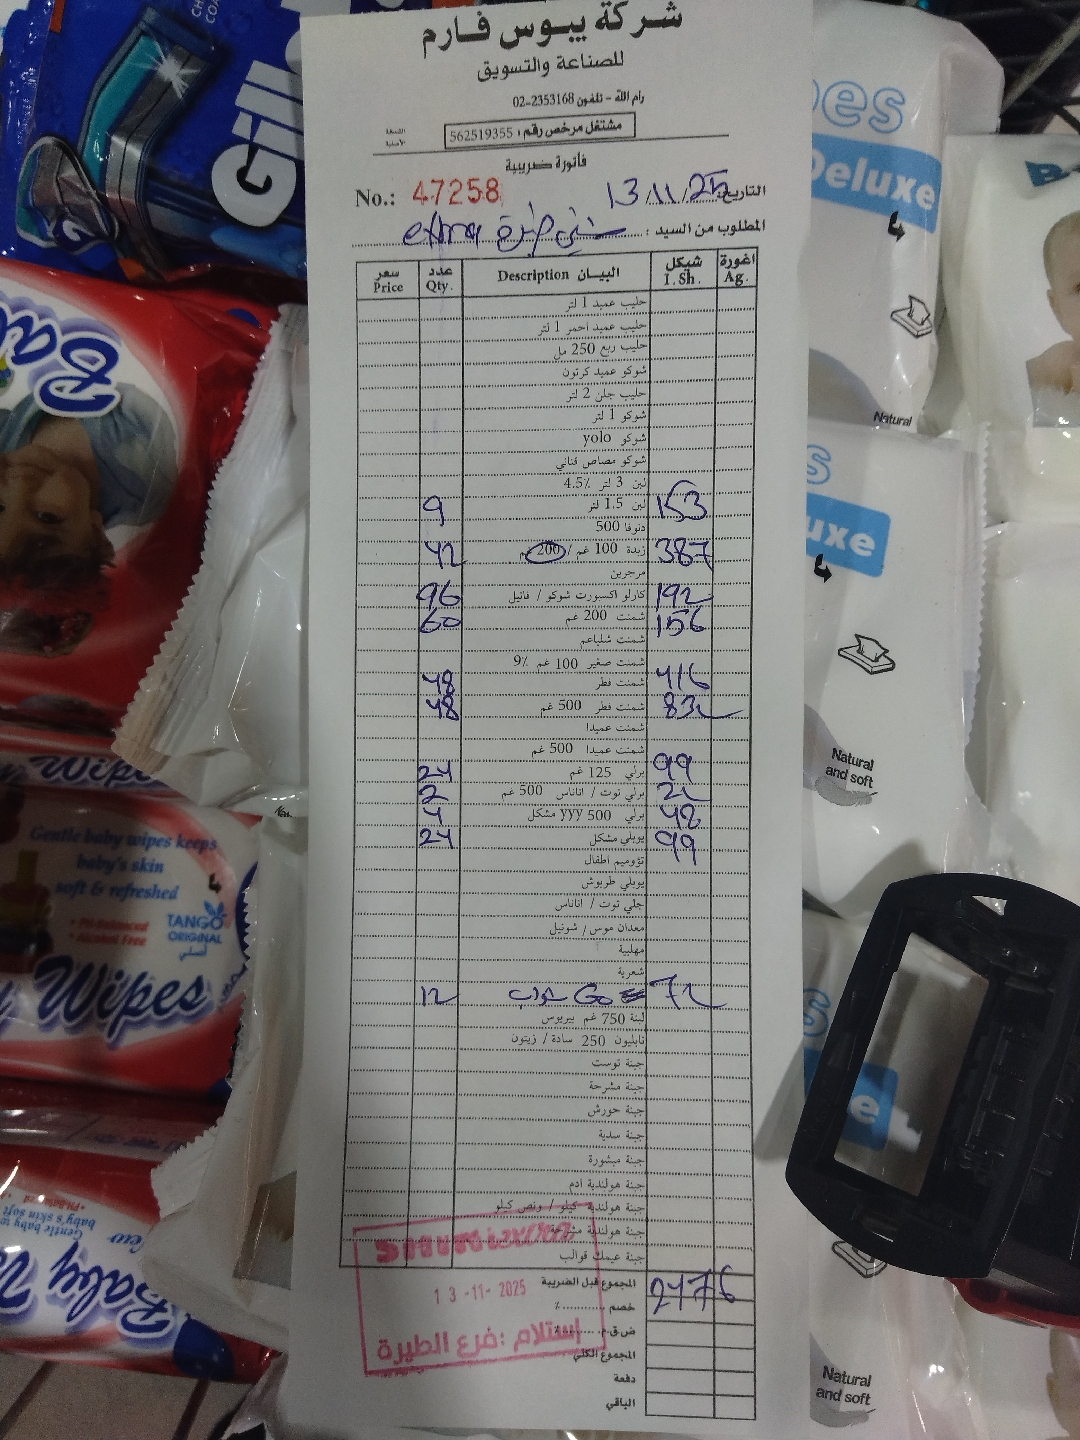 شركة بيوس فارم
للصناعة والتسويق
رام الله - تلفون 2353168-02
مشتغل مرخص رقم: 562519355
النسخة الأصلية
فاتورة ضريبية
No.: 47258
التاريخ: 13/11/25
المطلوب من السيد: extra
سعر Price عدد Qty. البيان Description شيكل I. Sh. اغورة Ag.
حليب عميد 1 لتر
حليب عميد احمر 1 لتر
حليب ربع 250 مل
شوكو عميد كرتون
حليب جلن 2 لتر
شوكو 1 لتر
شوكو yolo
شوكو مصاص قناني
لبن 3 لتر 4.5%
9 لبن 1.5 لتر 153
دنوفا 500
42 زبدة 100 غم / 200 غم 387
مرجرين
96 كارلو اكسبورت شوكو / فانيل 192
60 شمنت 200 غم 156
شمنت شلباعم
شمنت صغير 100 غم 9%
48 شمنت فطر 416
48 شمنت فطر 500 غم 832
شمنت عميدا
شمنت عميدا 500 غم
24 برلي 125 غم 99
2 برلي توت / اناناس 500 غم 22
4 برلي 500 yyy مشكل 48
24 يوبلي مشكل 99
تؤوميم اطفال
يوبلي طربوش
جلي توت / اناناس
معدان موس / شوتيل
مهلبية
شعرية
12 Go 72
لبنة 750 غم بيريوس
نابليون 250 سادة / زيتون
جبنة توست
جبنة مشرحة
جبنة حورش
جبنة سدية
جبنة مبشورة
جبنة هولندية ادم
جبنة هولندية كيلو / ونص كيلو
جبنة هولندية مشرحة
جبنة عيمك قوالب
المجموع قبل الضريبة 2476
خصم ........... %
ض.ق.م ........... %
المجموع الكلي
دفعة
الباقي
13 -11- 2025
إستلام : فرع الطيرة
Gill
Deluxe
Natural
uxe
Natural
and soft
Natural
and soft
Wipes
Gentle baby wipes keeps
baby's skin
soft & refreshed
PH-Balanced
Alcohol Free
TANGO
ORIGINAL
أصلي
Wipes
Baby